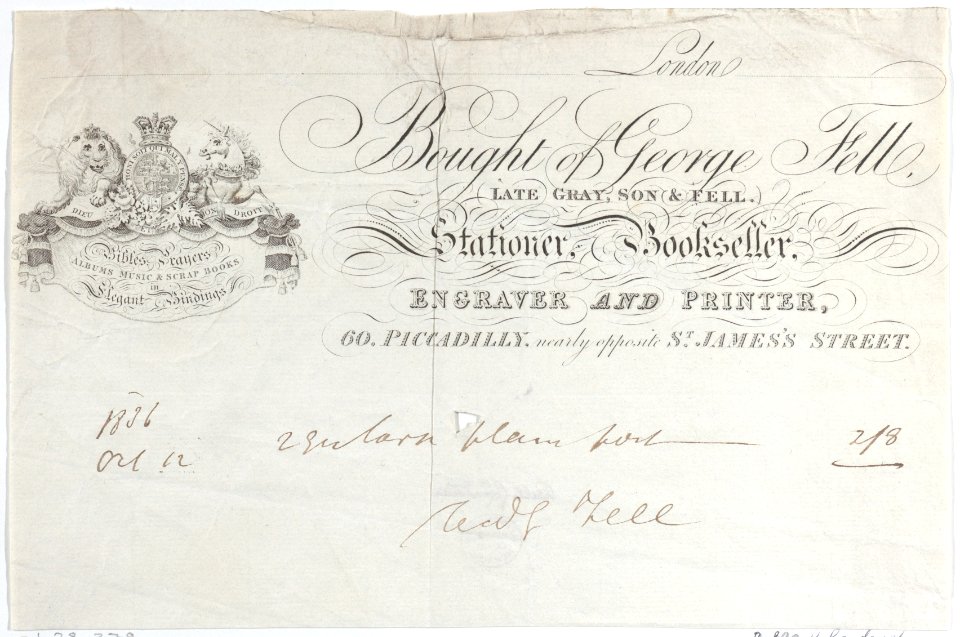 London
Bought of George Fell.
(LATE GRAY, SON & FELL.)
Stationer, Bookseller,
ENGRAVER AND PRINTER,
60. PICCADILLY. nearly opposite ST. JAMES'S STREET.
HONI SOIT QUI MAL Y PENSE
DIEU MON DROIT
Bibles, Prayers
ALBUMS MUSIC & SCRAP BOOKS
in
Elegant Bindings
1836
Oct 12 plain post 2/8
Fell